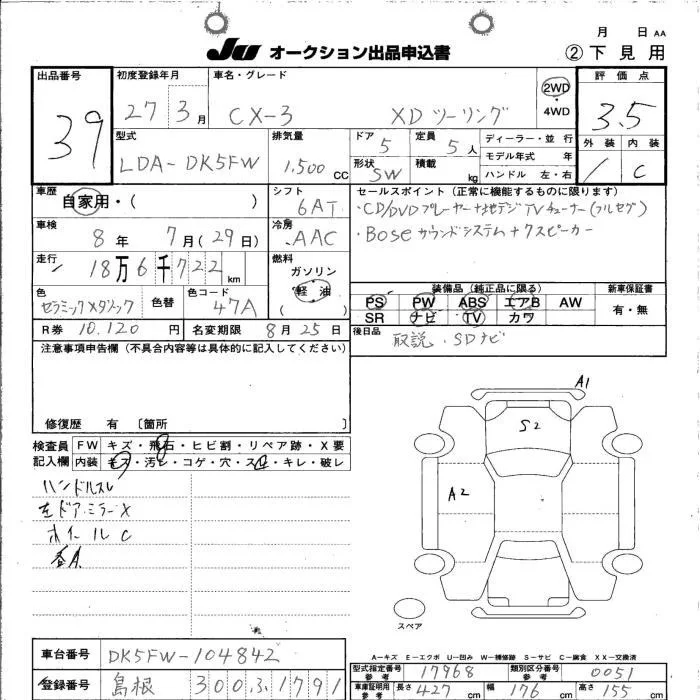 月 日 AA
JU オークション出品申込書 ②下見用
出品番号 39
初度登録年月 27 3月
車名・グレード CX-3 XDツーリング
2WD・4WD
評価点 3.5
外装 / 内装 C
型式 LDA-DK5FW
排気量 1,500 CC
ドア 5
定員 5人
形状 SW
積載 kg
ディーラー・並行
モデル年式 年
ハンドル 左・右
車歴 自家用・( )
シフト 6AT
車検 8年 7月(29日)
冷房 AAC
走行 18万6千722km
燃料 ガソリン 軽油 ( )
色 セラミックメタリック
色替
色コード 47A
R券 10,120円
名変期限 8月25日
セールスポイント(正常に機能するものに限ります)
・CD/DVDプレーヤー+地デジTVチューナー(フルセグ)
・Boseサウンドシステム+7スピーカー
装備品(純正品に限る) 新車保証書
PS PW ABS エアB AW 有・無
SR ナビ TV カワ
後日品 取説・SDナビ
注意事項申告欄(不具合内容等は具体的に記入してください)
修復歴 有〔箇所 〕
検査員記入欄
FW キズ・飛石・ヒビ割・リペア跡・X要
内装 キズ・汚レ・コゲ・穴・スレ・キレ・破レ
ハンドルスレ
左ドアミラーX
ホイールC
A1
S2
A2
スペア
A…キズ E…エクボ U…凹み W…補修跡 S…サビ C…腐食 XX…交換済
車台番号 DK5FW-104842
登録番号 島根 300 ふ 1791
型式指定番号 参考 17968
類別区分番号 参考 0051
車庫証明用 参考 長さ 427cm 幅 176cm 高さ 155cm